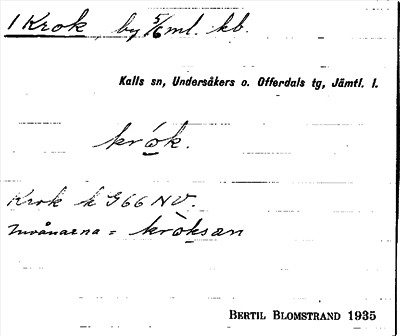 1 Krok by 5/6 ml. kb.
Kalls sn, Undersåkers o. Offerdals tg, Jämtl. l.
krók.
Krok k G66 NV.
Invånarna = króksan
BERTIL BLOMSTRAND 1935